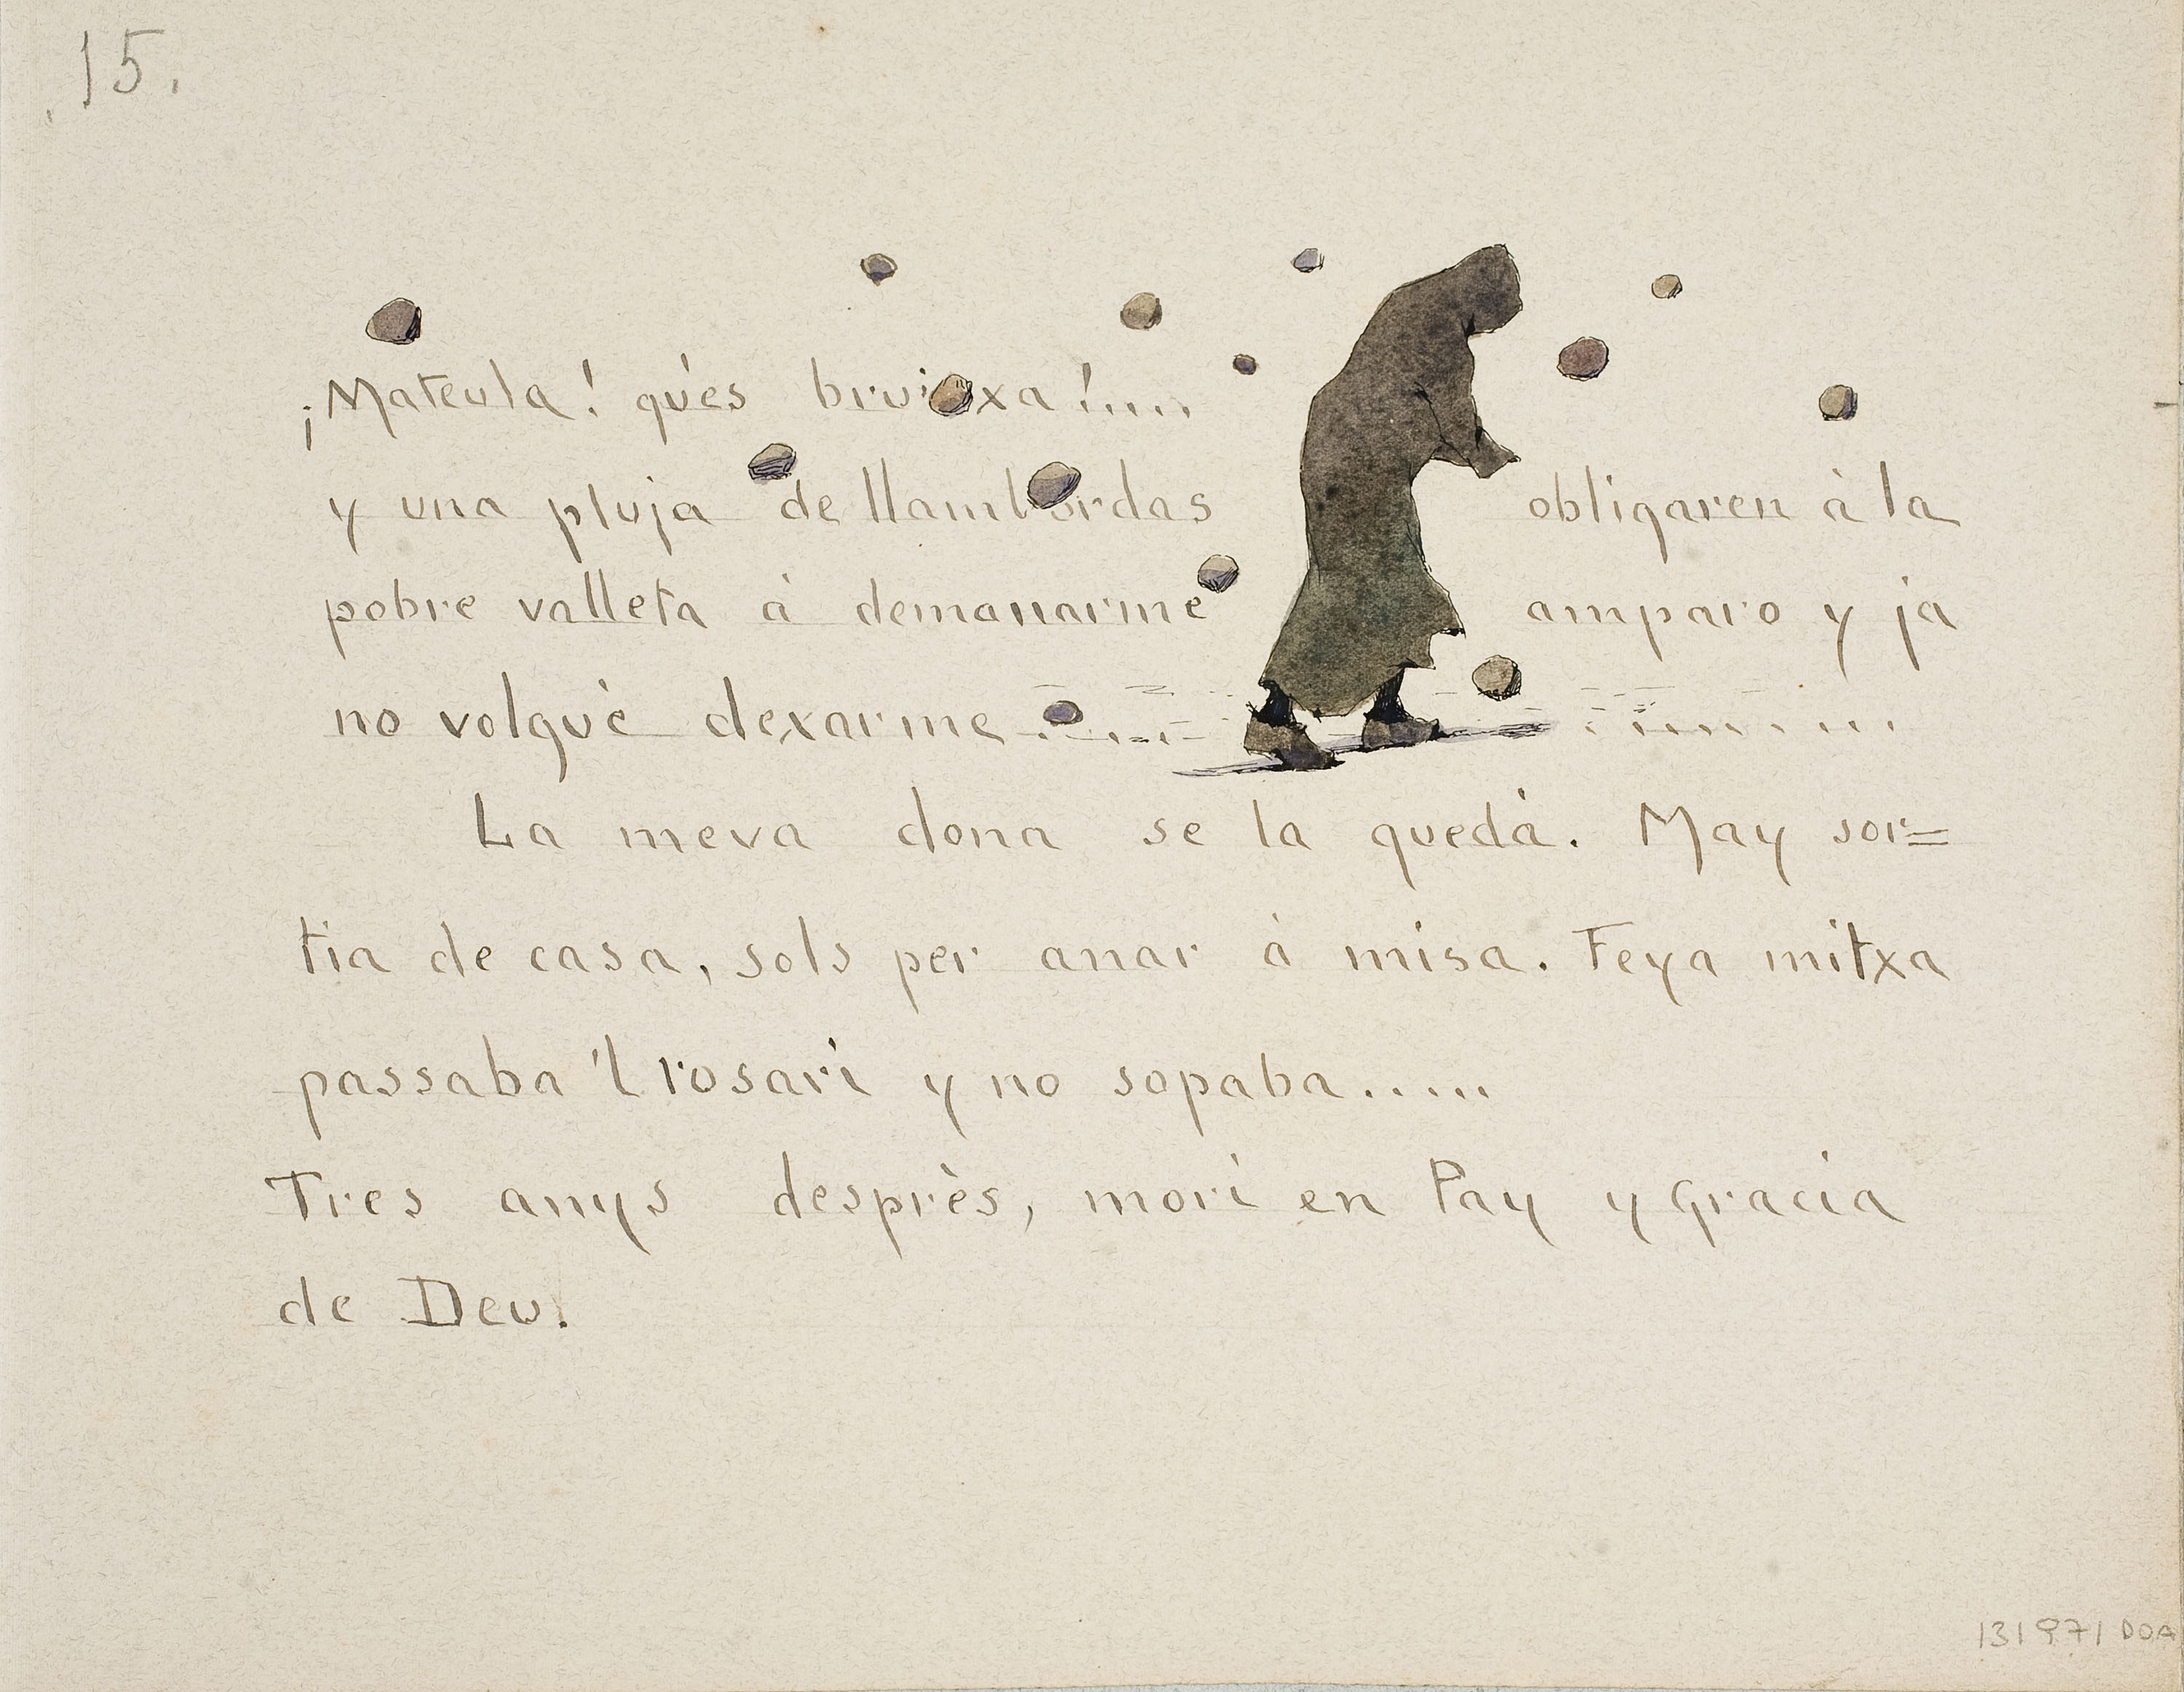 15.
¡Mateula! qu'es bruixa!....
y una pluja de llambordas obligaren à la
pobre valleta à demanarme amparo y ja
no volguè dexarme
La meva dona se la quedà. May sor=
tia de casa, sols per anar à misa. Feya mitxa
passaba 'l rosari y no sopaba.....
Tres anys desprès, morì en Pay y Gracia
de Deu.
131971 DOA